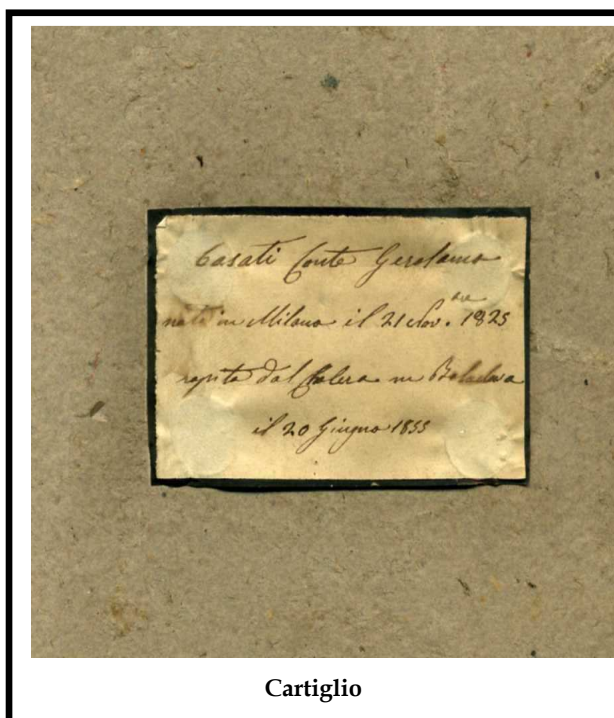 Casati Conte Gerolamo
nato in Milano il 21 Nov.bre 1825
rapito dal Colera in Balaclava
il 20 Giugno 1855
Cartiglio